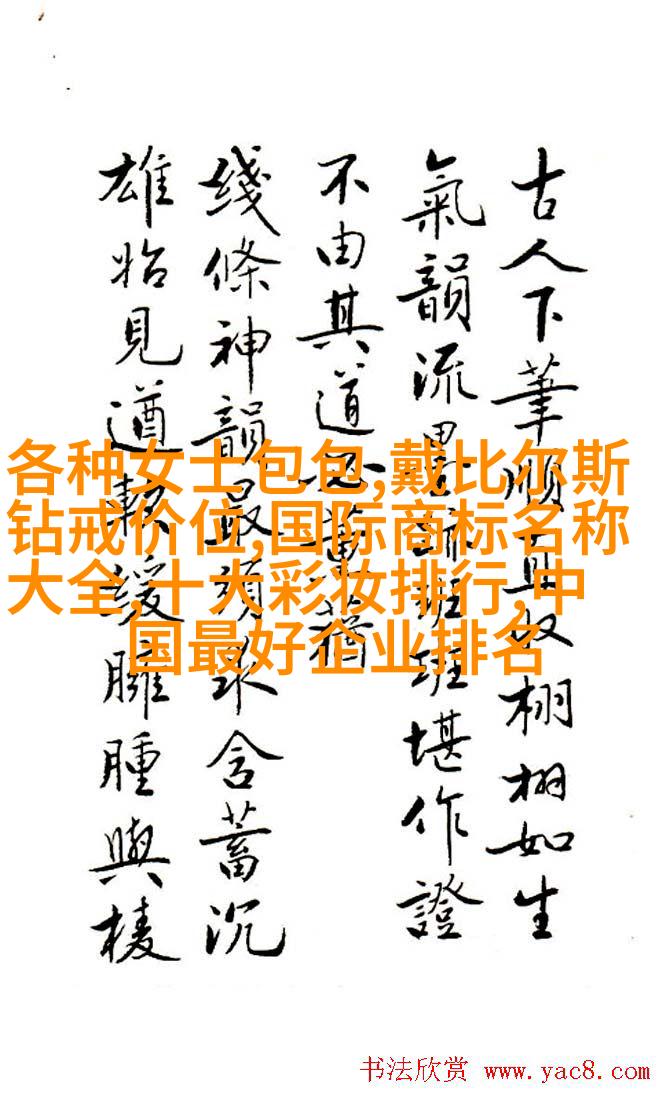 古人下筆順栩栩如生
氣韻流班班堪作證
不由其道
綫條神韻最須求含蓄沉
雄始見遒緩臃腫與棱
各种女士包包,戴比尔斯
钻戒价位,国际商标名称
大全,十大彩妆排行,中
国最好企业排名
书法欣赏 www.yac8.com